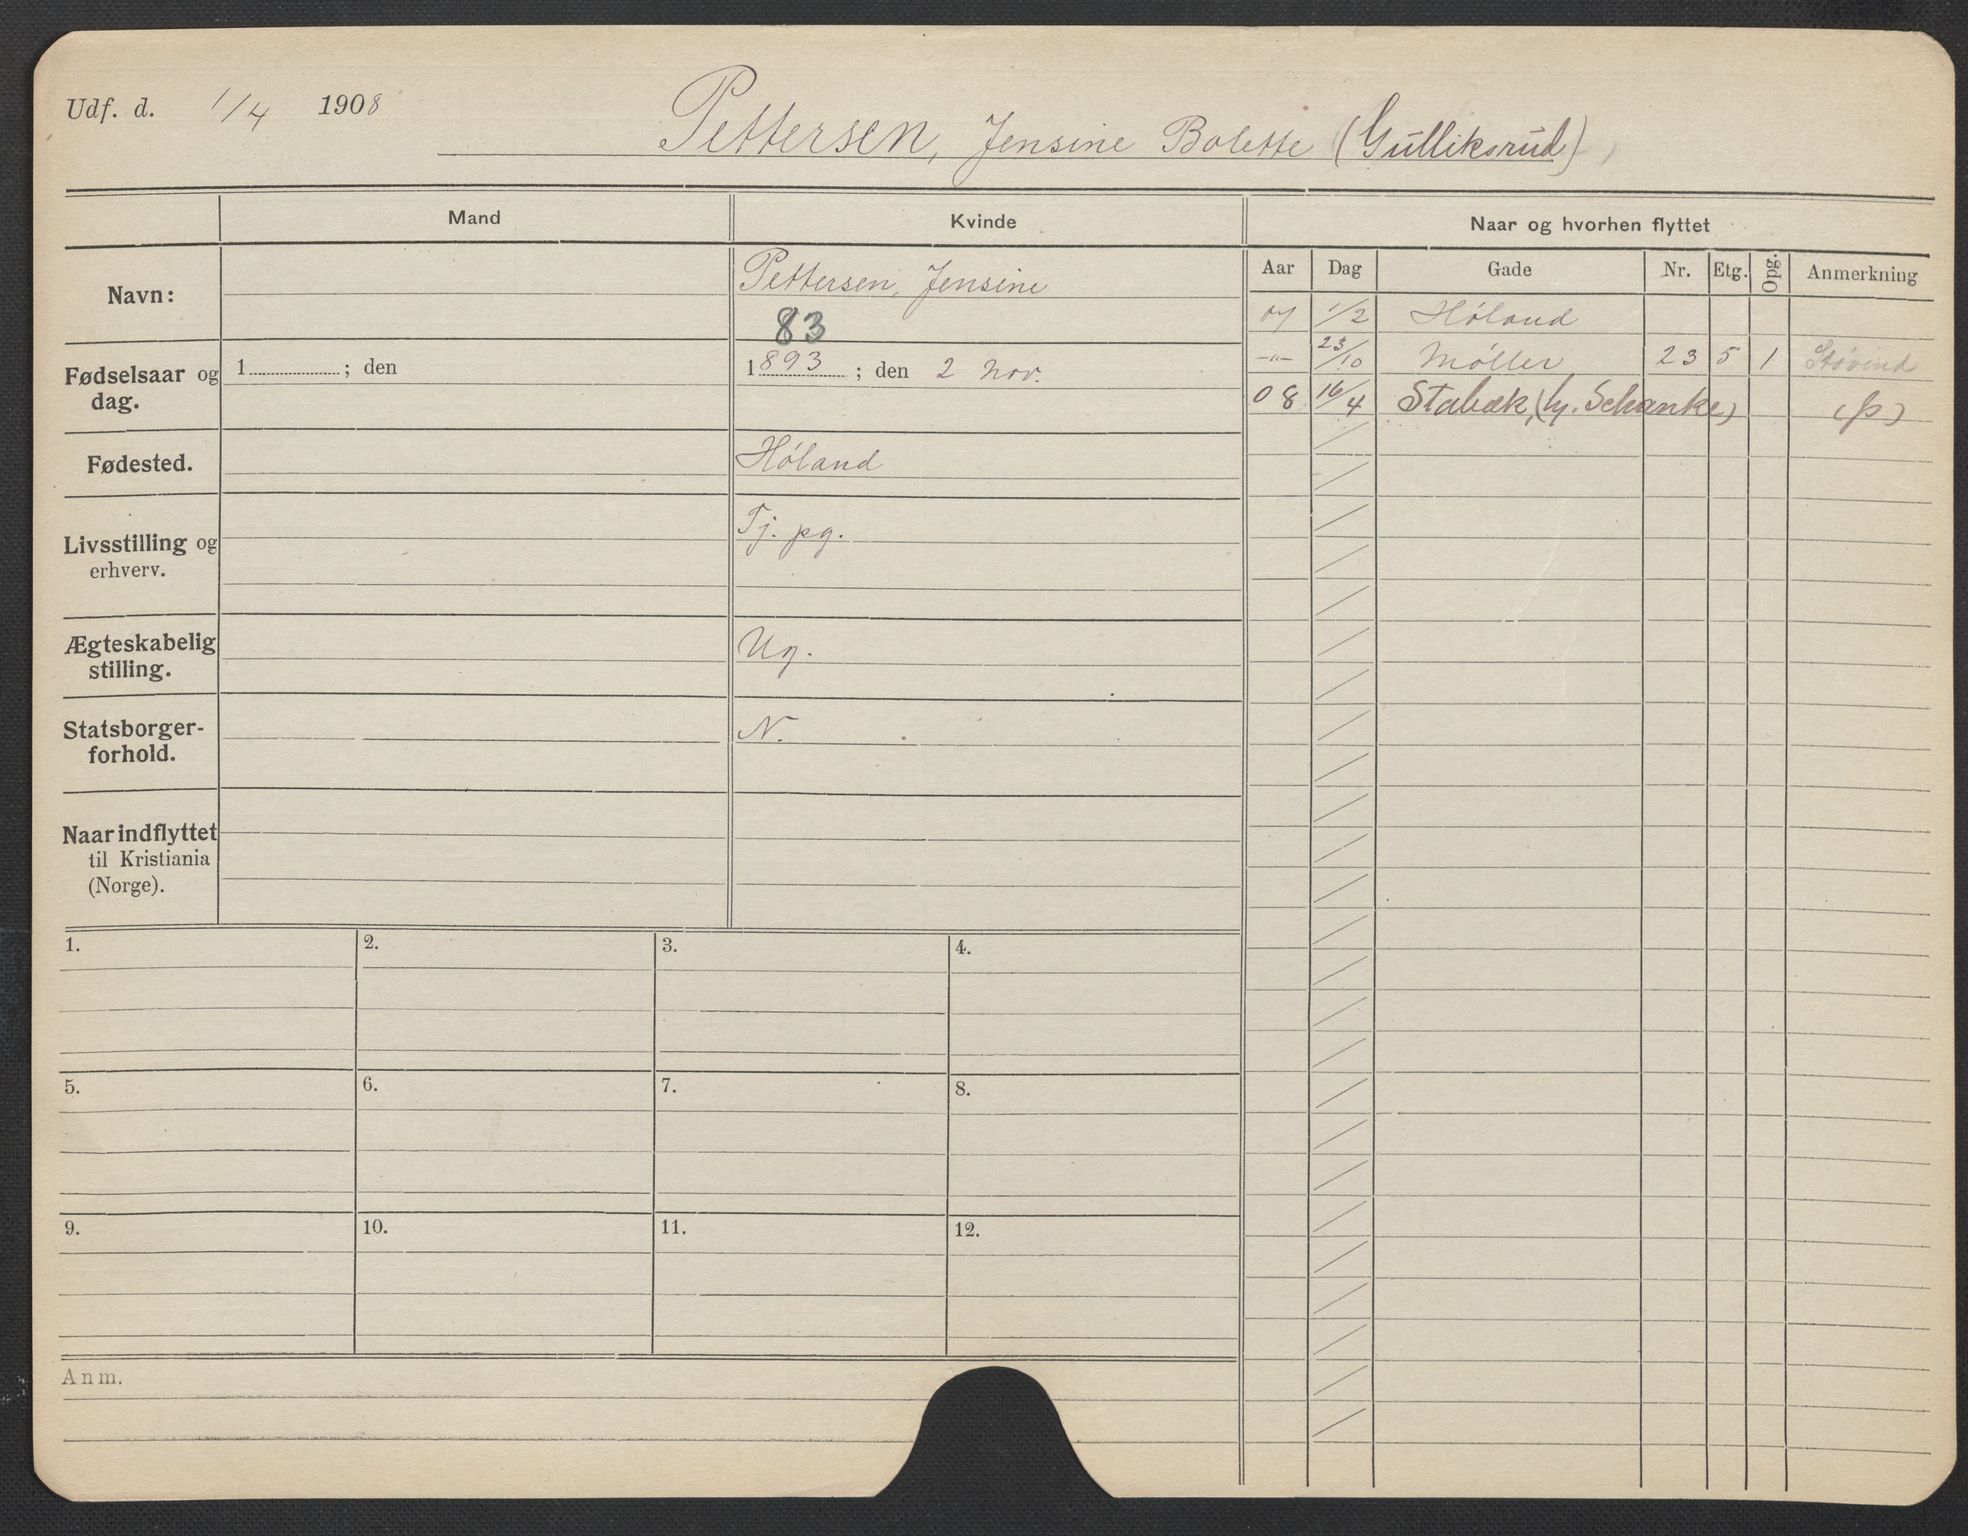 Udf. d. 1/4 1908
Pettersen, Jensine Bolette (Gulliksrud)
Mand
Kvinde
Naar og hvorhen flyttet
Aar Dag Gade Nr. Etg. Opg. Anmerkning
Navn:
Pettersen, Jensine
83
Fødselsaar og dag.
1 ; den
1893 ; den 2 Nov.
Fødested.
Høland
Livsstilling og erhverv.
Tj. pg.
Ægteskabelig stilling.
Ug.
Statsborger-
forhold.
N.
Naar indflyttet
til Kristiania
(Norge).
07 1/2 Høland
-"- 23/10 Møller 23 5 1
08 16/4 Stabæk, (hj. Schanke) (p)
1. 2. 3. 4.
5. 6. 7. 8.
9. 10. 11. 12.
Anm.